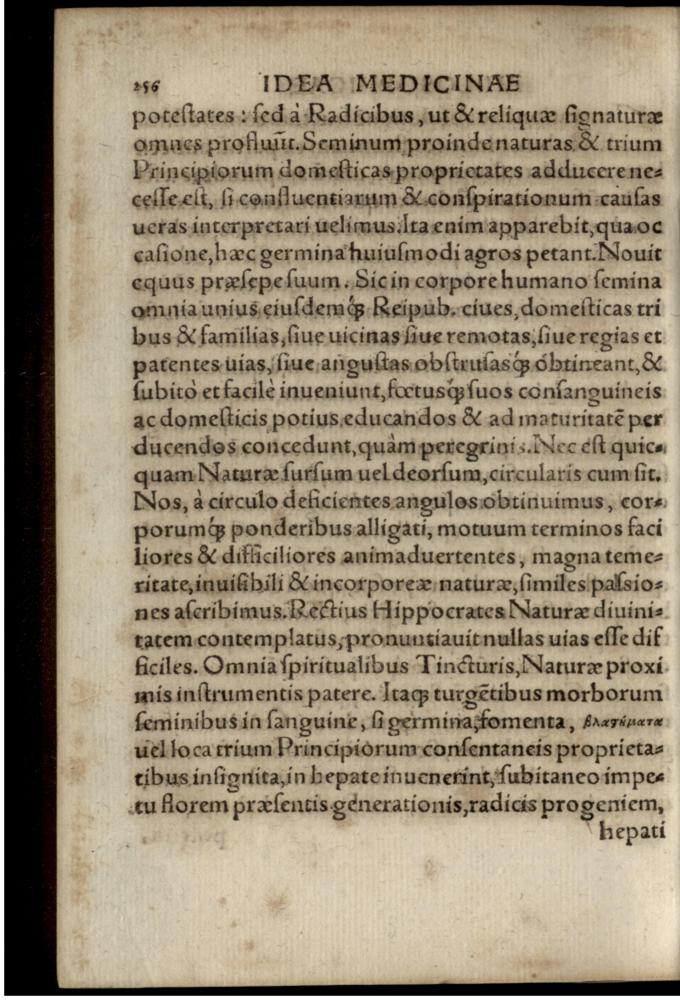 256 IDEA MEDICINAE
poteſtates : ſed à Radicibus, ut & reliquæ ſignaturæ
omnes profluũt. Seminum proinde naturas & trium
Principiorum domeſticas proprietates adducere ne-
ceſſe eſt, ſi confluentiarum & conſpirationum cauſas
ueras interpretari uelimus. Ita enim apparebit, qua oc
caſione, hæc germina huiuſmodi agros petant. Nouit
equus præſepe ſuum. Sic in corpore humano ſemina
omnia unius eiuſdemq́; Reipub. ciues, domeſticas tri
bus & familias, ſiue uicinas ſiue remotas, ſiue regias et
patentes uias, ſiue anguſtas obſtruſasq́; obtineant, &
ſubitò et facilè inueniunt, fœtusq́; ſuos conſanguineis
ac domeſticis potius educandos & ad maturitatẽ per
ducendos concedunt, quàm peregrinis. Nec eſt quic-
quam Naturæ ſurſum uel deorſum, circularis cum ſit.
Nos, à circulo deficientes angulos obtinuimus, cor-
porumq́; ponderibus alligati, motuum terminos faci
liores & difficiliores animaduertentes, magna teme-
ritate, inuiſibili & incorporeæ naturæ, ſimiles paſsio-
nes aſcribimus. Rectius Hippocrates Naturæ diuini-
tatem contemplatus, pronuntiauit nullas uias eſſe dif
ficiles. Omnia ſpiritualibus Tincturis, Naturæ proxi
mis inſtrumentis patere. Itaq; turgẽtibus morborum
ſeminibus in ſanguine, ſi germina, fomenta,
uel loca trium Principiorum conſentaneis proprieta-
tibus inſignita, in hepate inuenerint, ſubitaneo impe-
tu florem præſentis generationis, radicis progeniem,
hepati